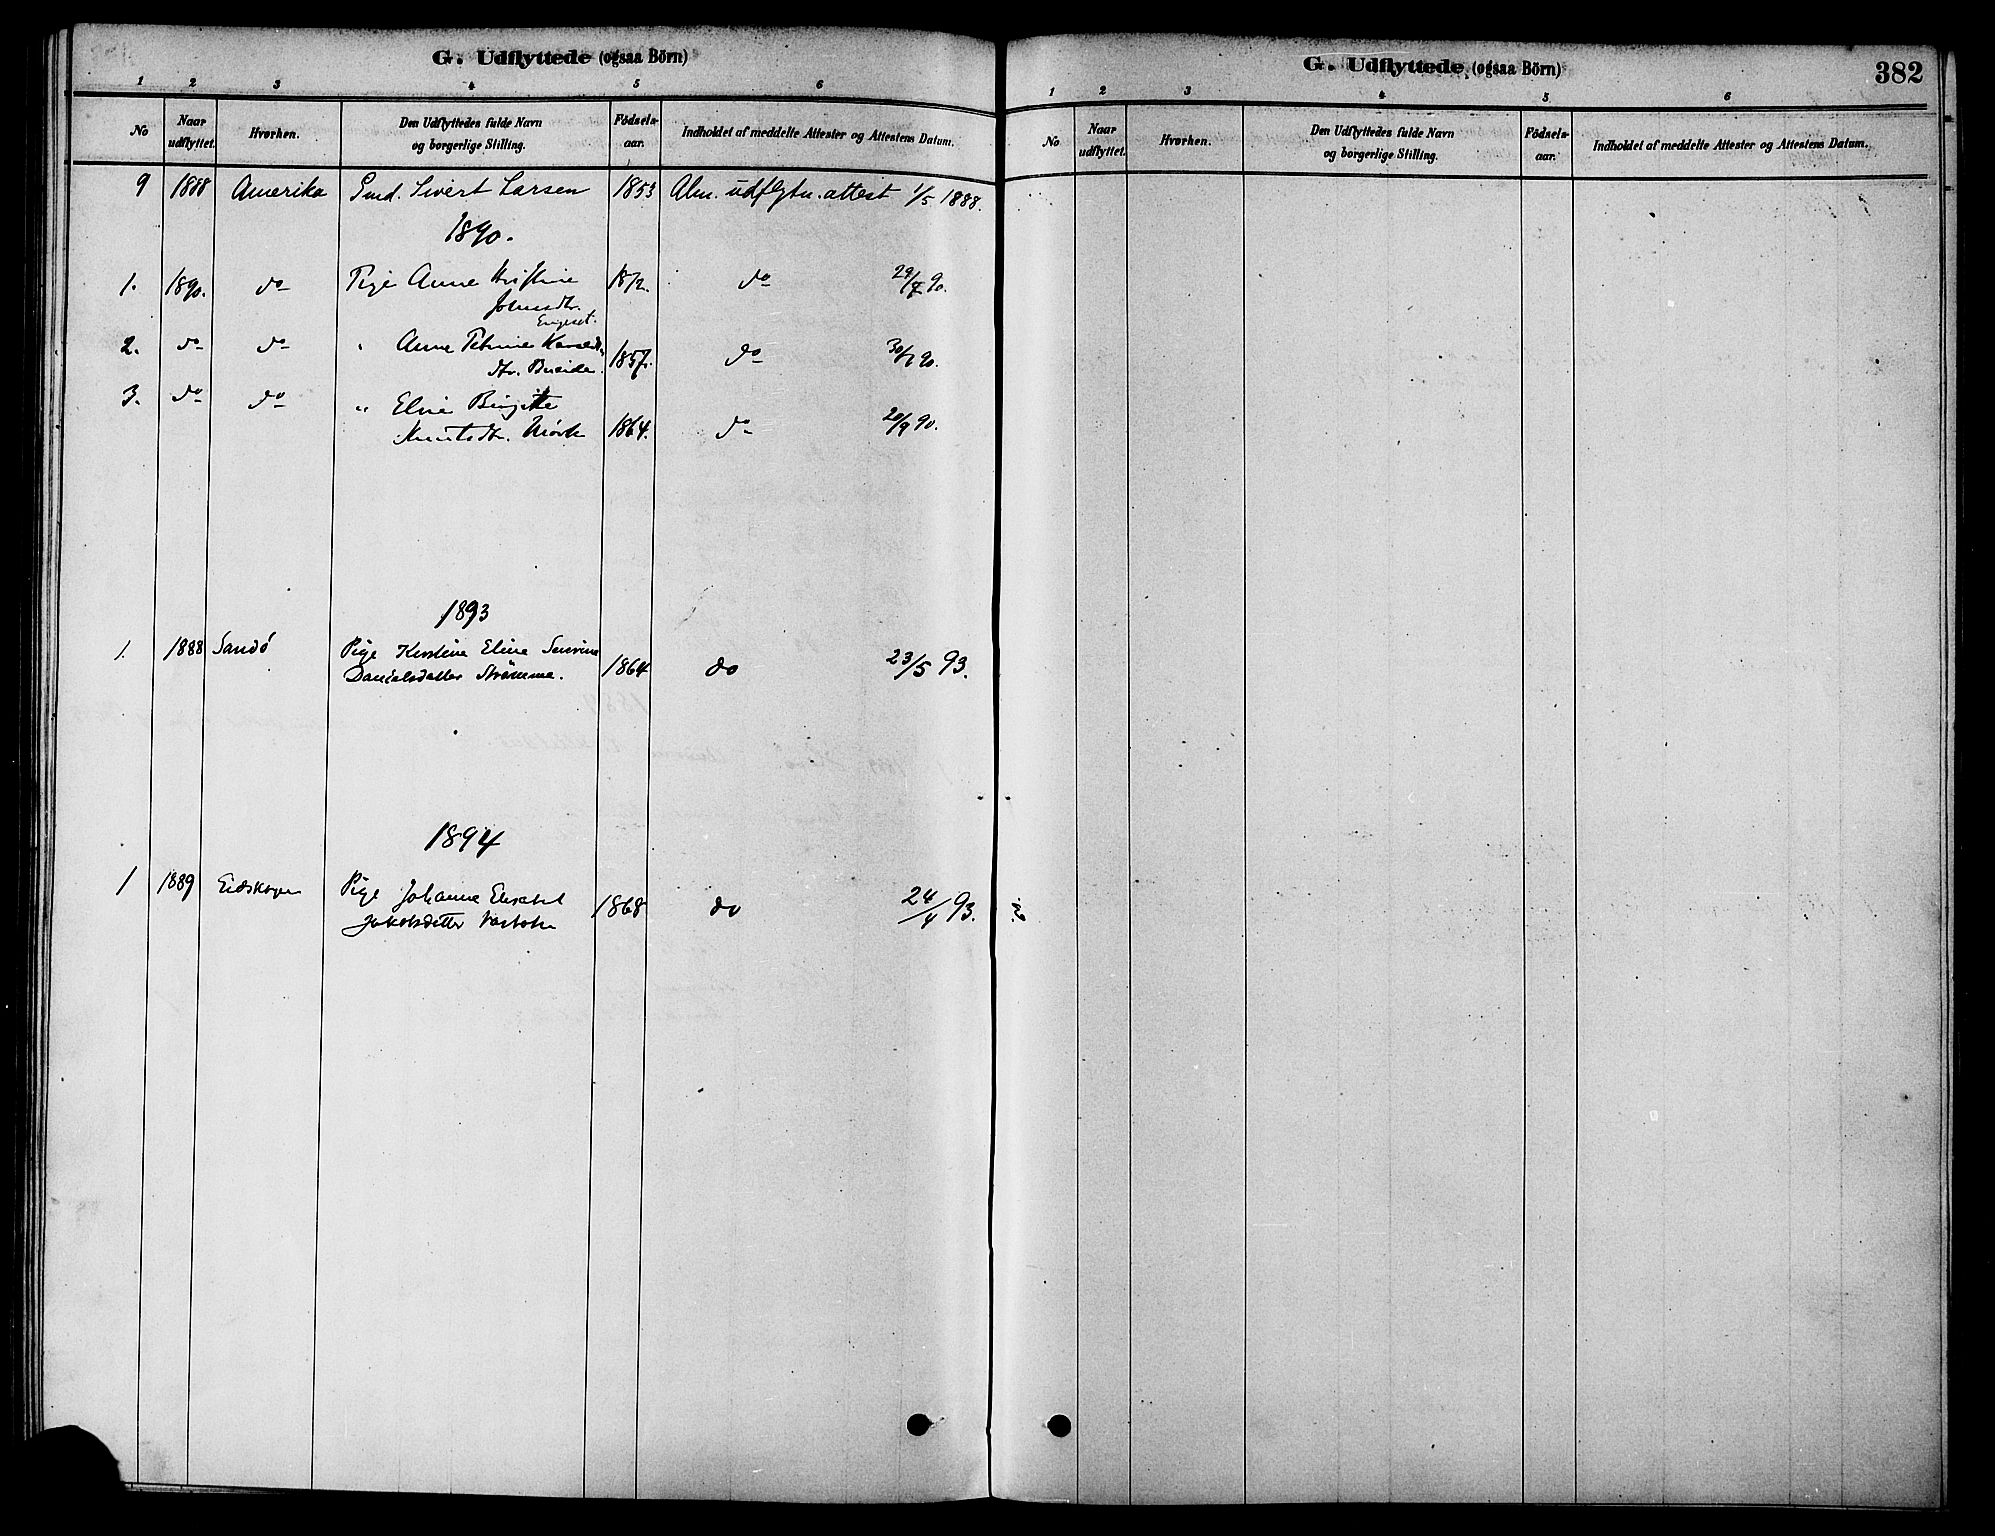 G. Udflyttede (ogsaa Börn)
1 2 3 4 5 6
No Naar udflyttet. Hvorhen. Den Udflyttedes fulde Navn og borgerlige Stilling. Födsels-aar. Indholdet af meddelte Attester og Attestens Datum.
9 1888 Amerika Gmd. Sivert Larsen 1853 Alm. udflytn. attest 1/5 1888.
1890.
1. 1890. do Pige Anne Kristine 1872. do 29/4 90.
Johnsdtr.
Engeset.
2. do do " Anne Petrine 1857. do 90.
dtr.
3. do do " Eline Birgitte
Knutsdtr. Mörk 1864. do 20/9 90.
1893
1. 1888 Sandö Pige Kirstine Eline Severine
Danielsdatter Strömme. 1864 do 23/5 93.
1894
1 1889 Eidskogen Pige Johanne Elisabet
Jakobsdatter 1868 do 24/4 93.
G. Udflyttede (ogsaa Börn)
382
1 2 3 4 5 6
No Naar udflyttet. Hvorhen. Den Udflyttedes fulde Navn og borgerlige Stilling. Födsels-aar. Indholdet af meddelte Attester og Attestens Datum.